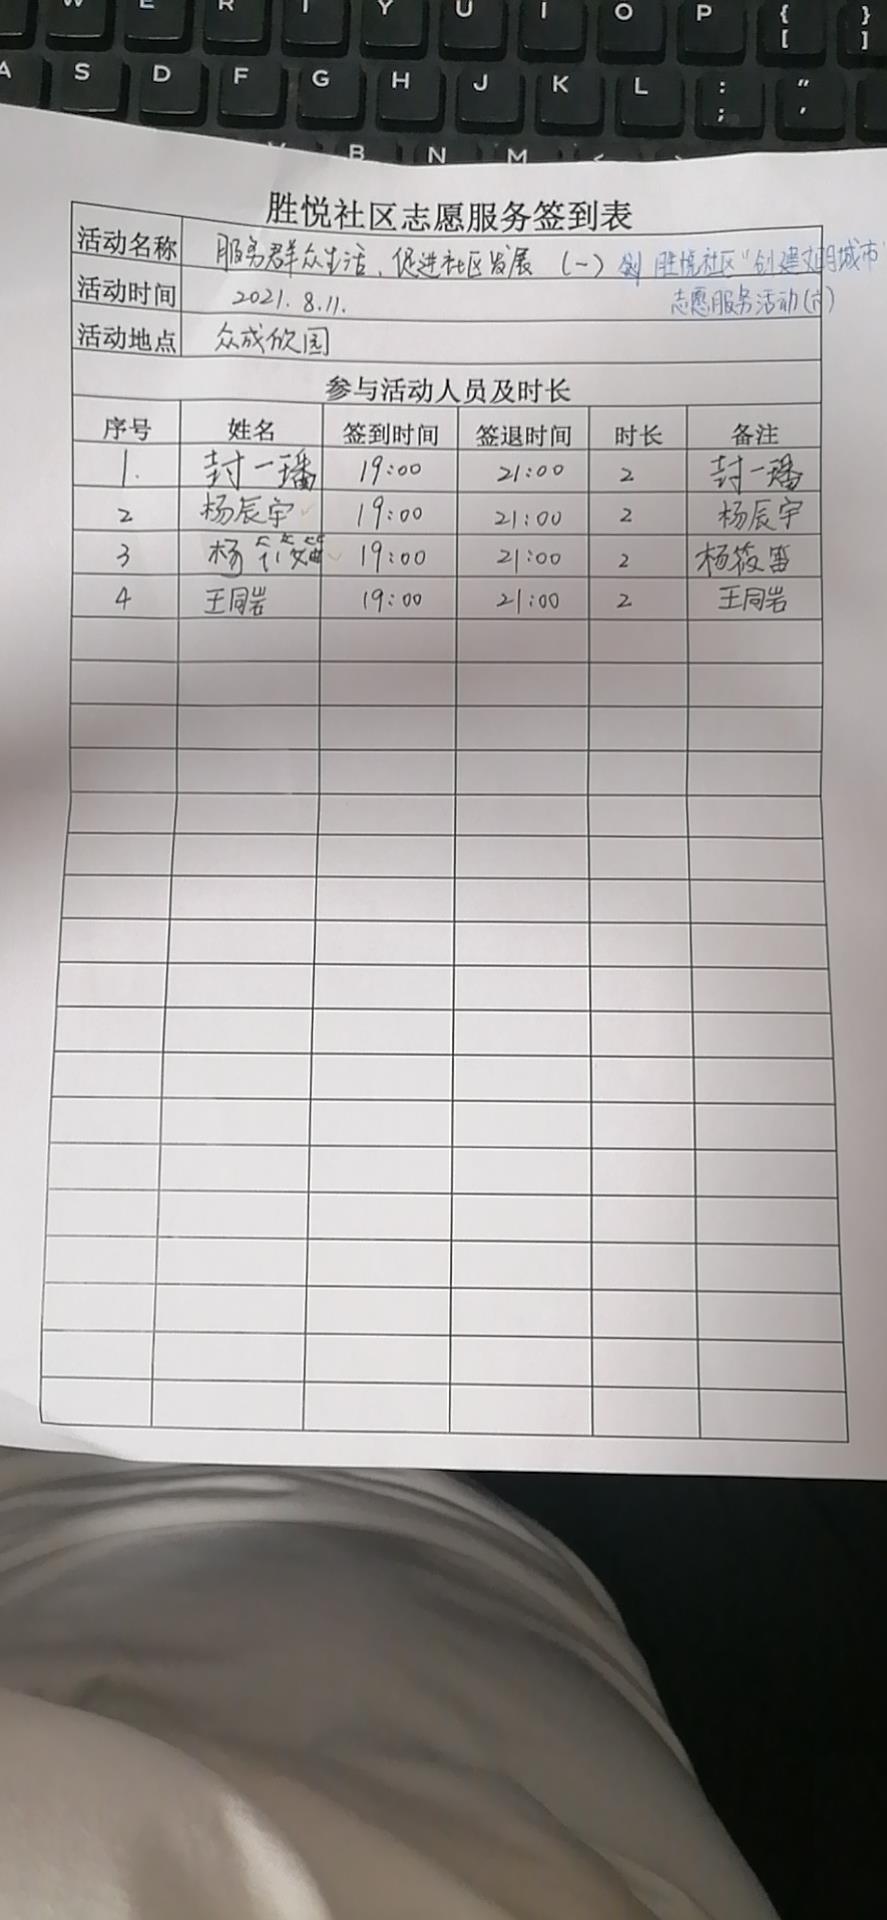 W E R T Y U I O P { [ } ]
A S D F G H J K L : ; " '
B N M < >
胜悦社区志愿服务签到表
活动名称 服务群众生活、促进社区发展 (一) 胜悦社区"创建文明城市"
志愿服务活动(六)
活动时间 2021.8.11.
活动地点 众成欣园
参与活动人员及时长
序号 姓名 签到时间 签退时间 时长 备注
1. 封一璠 19:00 21:00 2 封一璠
2 杨辰宇 19:00 21:00 2 杨辰宇
3 杨筱笛 19:00 21:00 2 杨筱笛
4 王同岩 19:00 21:00 2 王同岩